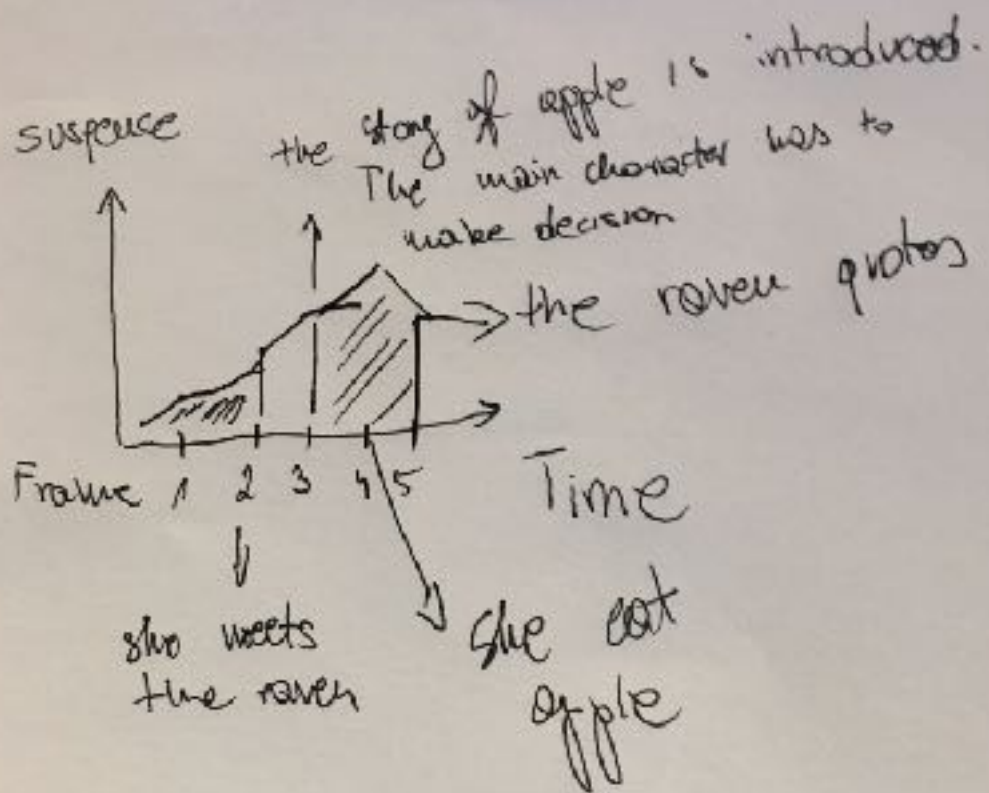 suspense
the story of apple is introduced.
The main character has to
make decision
the raven quotes
Frame 1 2 3 4 5
Time
she meets
the raven
She eat
apple